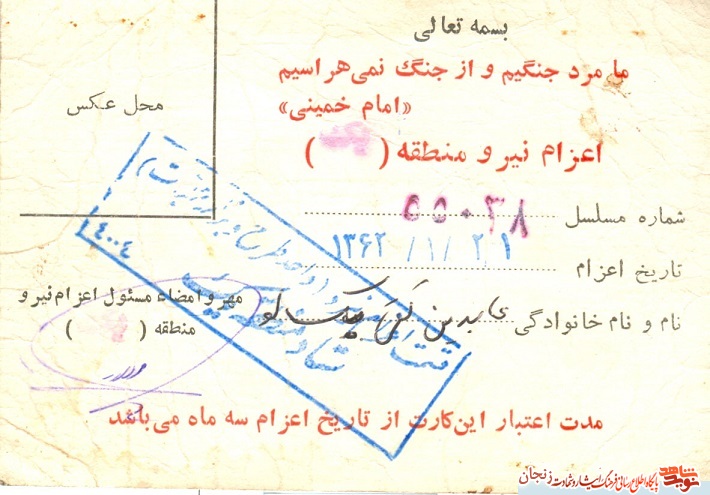 بسمه تعالی
ما مرد جنگیم و از جنگ نمی هراسیم
«امام خمینی»
محل عکس
اعزام نیرو منطقه ( )
شماره مسلسل ۵۵۰۳۸
تاریخ اعزام ۱۳۶۲/۱/۲۱
نام و نام خانوادگی عابدین
مهر و امضاء مسئول اعزام نیرو
منطقه ( )
۴۰۰۴
مدت اعتبار این کارت از تاریخ اعزام سه ماه می باشد
نوید شاهد
پایگاه اطلاع رسانی فرهنگ ایثار و شهادت زنجان